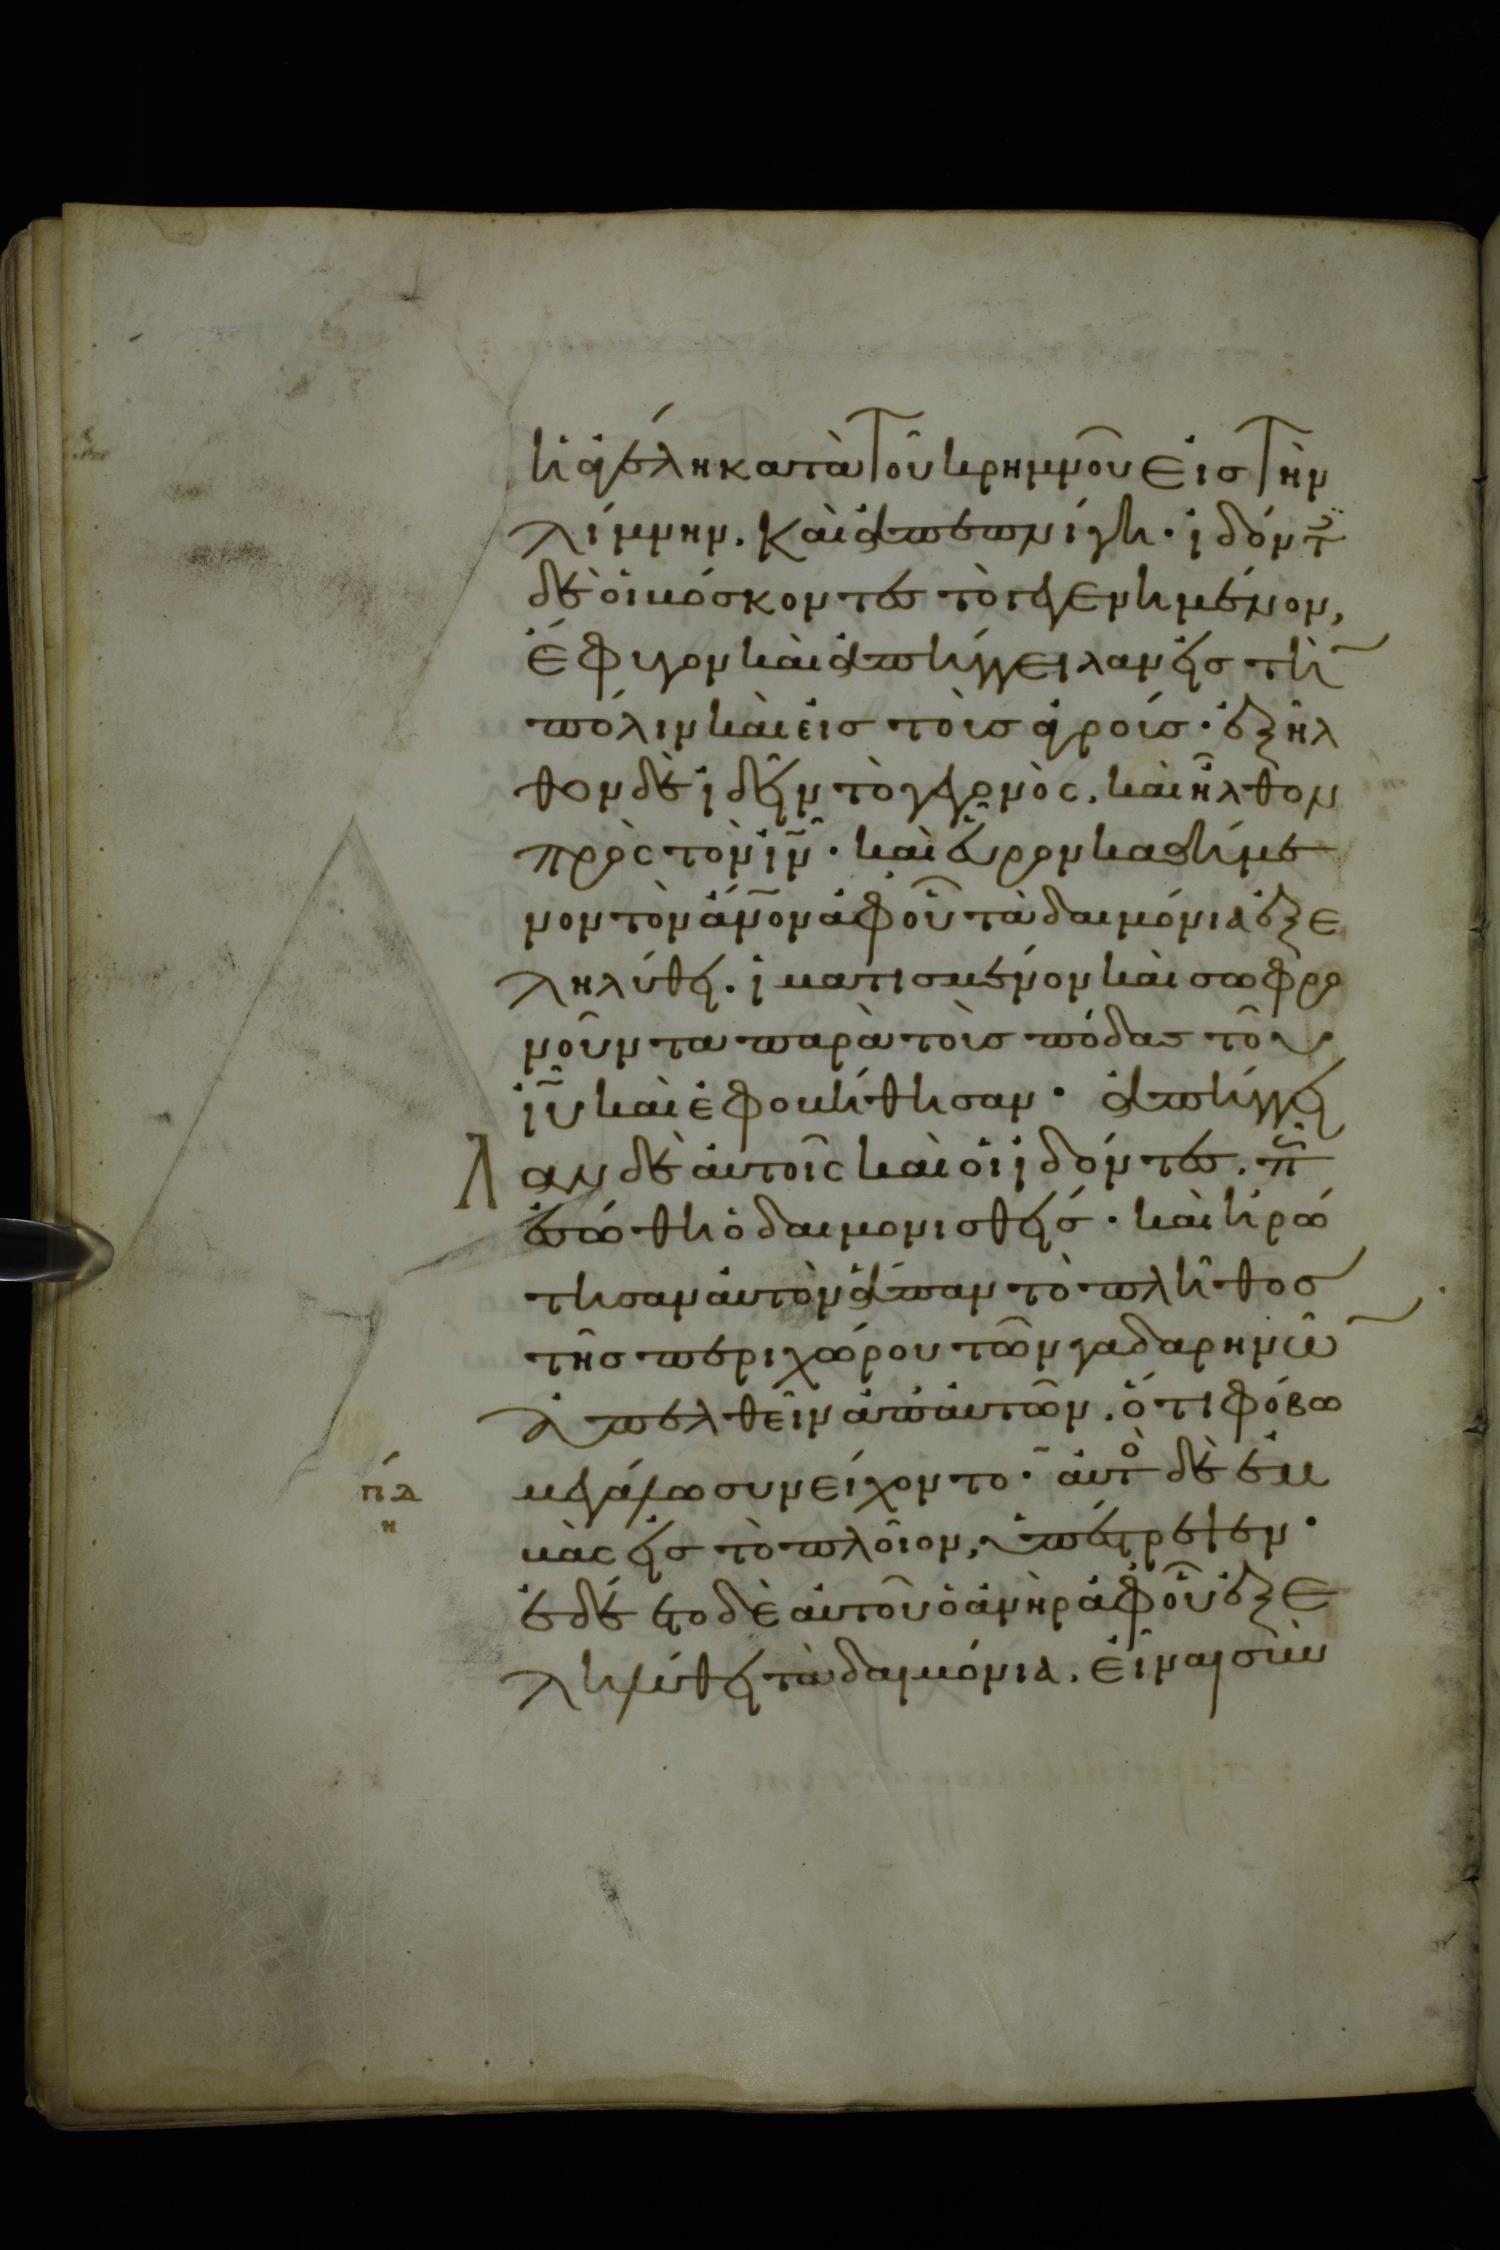 ἡ ἀγέλη κατὰ τοῦ κρημνοῦ εἰς τὴν
λίμνην. καὶ ἀπεπνίγη· ἰδόντ
δὲ οἱ βόσκοντες τὸ γεγενημένον,
ἔφυγον καὶ ἀπήγγειλαν εἰς τὴ
πόλιν καὶ εἰς τοὺς ἀγρούς· ἐξῆλ
θον δὲ ἰδεῖν τὸ γεγονὸς. καὶ ἦλθον
πρὸς τὸν ἰν̅· καὶ εὗρον καθήμε
νον τὸν ἀν̅ον ἀφ οὗ τὰ δαιμόνια ἐξε
ληλύθει. ἱματισμένον καὶ σωφρο
νοῦντα παρὰ τοὺς πόδας τοῦ
ἰυ̅ καὶ ἐφοβήθησαν· ἀπήγγει
λαν δὲ αὐτοῖς καὶ οἱ ἰδόντες. π
ἐσώθη ὁ δαιμονισθείς· καὶ ἠρώ
τησαν αὐτὸν ἅπαν τὸ πλῆθος
τῆς περιχώρου τῶν γαδαρηνῶ
ἀπελθεῖν ἀπ αὐτῶν. ὅτι φόβω
μεγάλω συνείχοντο· αὐτὸ δὲ ἐμ
πΛ
η
βὰς εἰς τὸ πλοῖον, ὑπέστρεψεν·
ἐδέετο δὲ αὐτοῦ ὁ ἀνὴρ ἀφ οὗ ἐξε
ληλύθει τὰ δαιμόνια. εἶναι σὺν